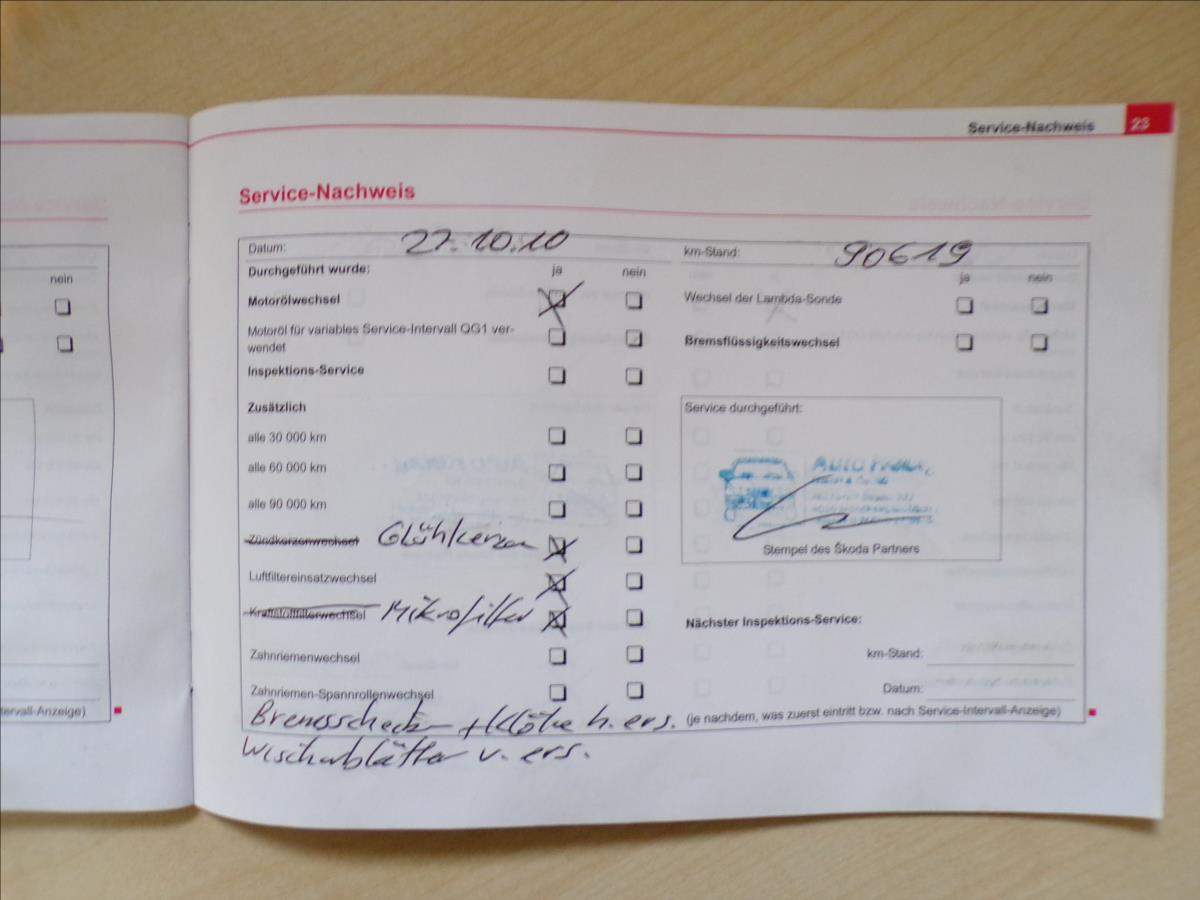 Service-Nachweis 23
Service-Nachweis
Datum: 27.10.10
Durchgeführt wurde: ja nein
Motorölwechsel
Motoröl für variables Service-Intervall QG1 ver-
wendet
Inspektions-Service
Zusätzlich
alle 30 000 km
alle 60 000 km
alle 90 000 km
Zündkerzenwechsel Glühkerzen
Luftfiltereinsatzwechsel
Kraftstofffilterwechsel Mikrofilter
Zahnriemenwechsel
Zahnriemen-Spannrollenwechsel
Bremsscheiben + Klötze h. ers.
Wischerblätter v. ers.
km-Stand: 90619
ja nein
Wechsel der Lambda-Sonde
Bremsflüssigkeitswechsel
Service durchgeführt:
AUTO
Stempel des Škoda Partners
Nächster Inspektions-Service:
km-Stand:
Datum:
(je nachdem, was zuerst eintritt bzw. nach Service-Intervall-Anzeige)
nein
tervall-Anzeige)